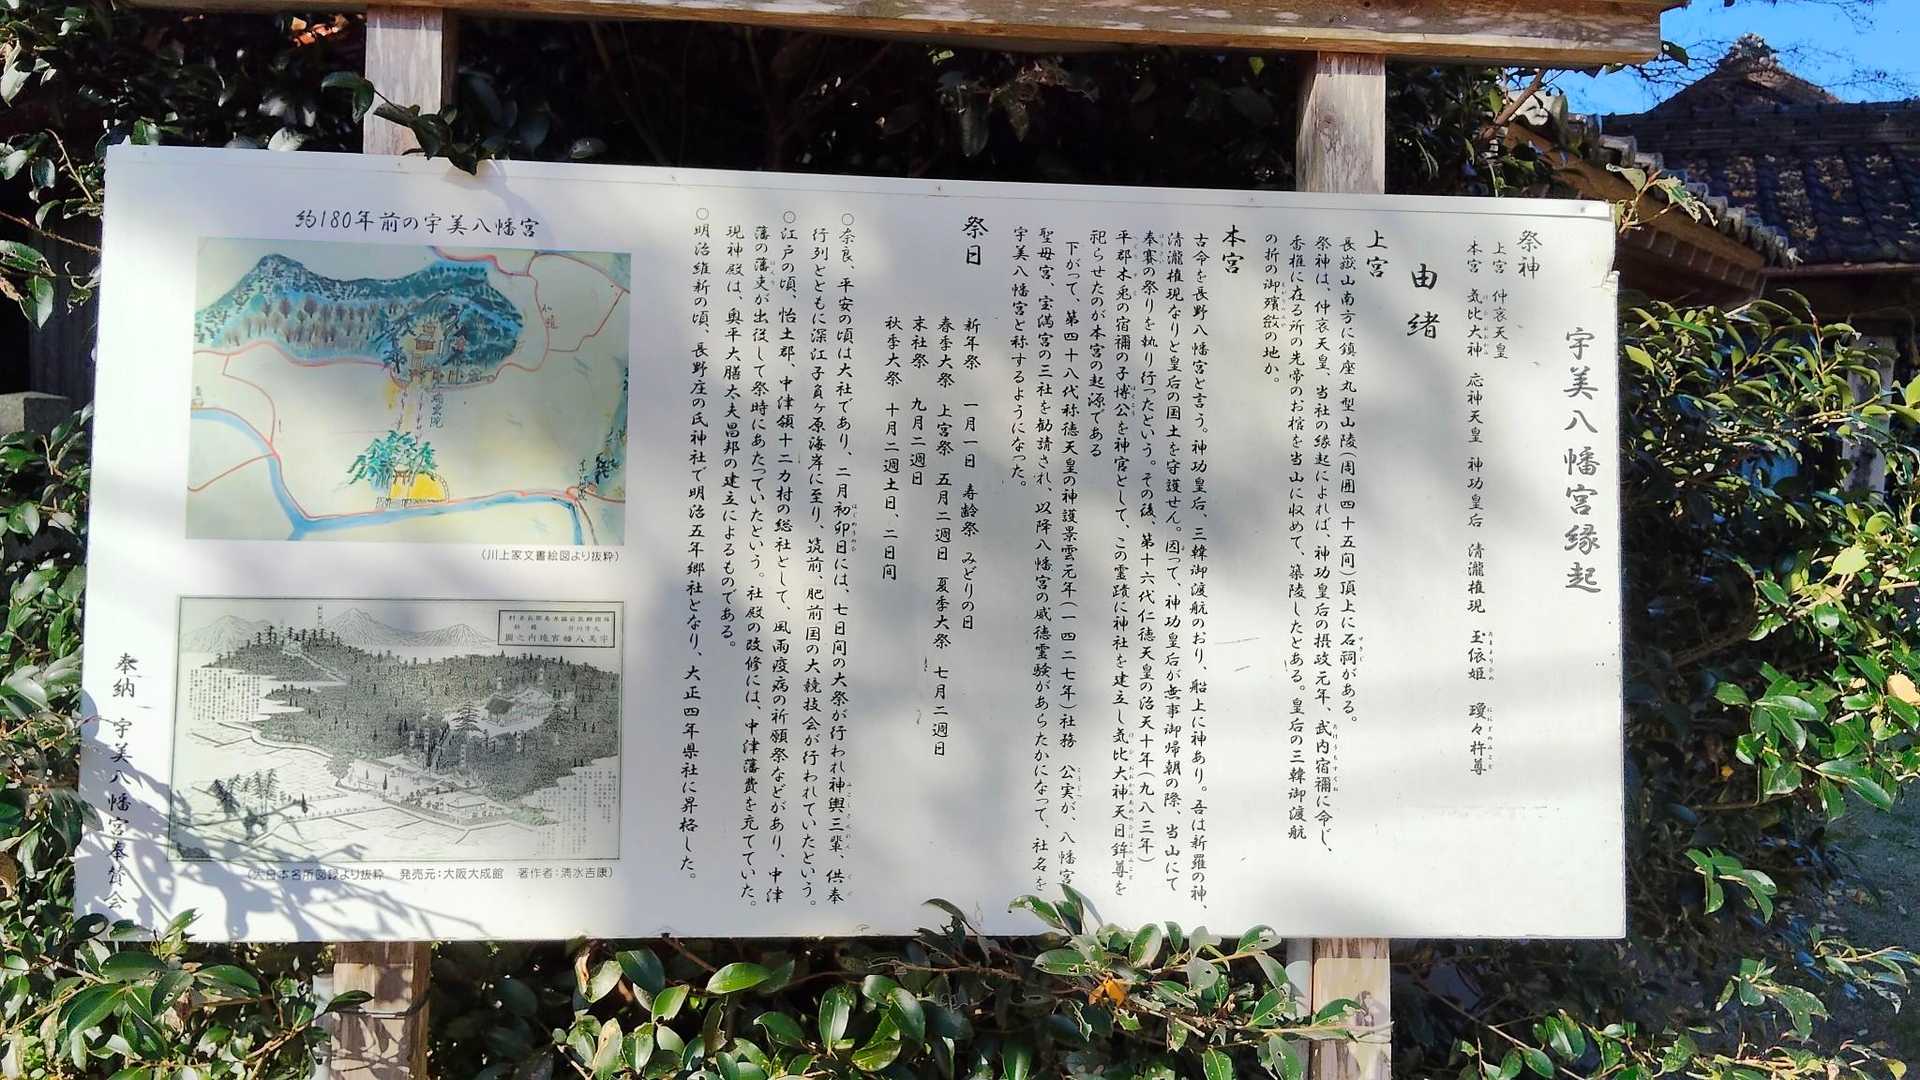 宇美八幡宮縁起
祭神
上宮 仲哀天皇
本宮 気比大神 応神天皇 神功皇后 清瀧権現 玉依姫 瓊々杵尊
由緒
上宮
長嶽山南方に鎮座丸型山陵(周囲四十五間)頂上に石祠がある。
祭神は、仲哀天皇、当社の縁起によれば、神功皇后の摂政元年、武内宿禰に命じ、
香椎に在る所の先帝のお棺を当山に収めて、築陵したとある。皇后の三韓御渡航
の折の御殯斂の地か。
本宮
古今を長野八幡宮と言う。神功皇后、三韓御渡航のおり、船上に神あり。吾は新羅の神、
清瀧権現なりと皇后の国土を守護せん。因って、神功皇后が無事御帰朝の際、当山にて
奉賽の祭りを執り行ったという。その後、第十六代仁徳天皇の治天十年(九八三年)
平郡木兎の宿禰の子博公を神宮として、この霊蹟に神社を建立し気比大神天日鉾尊を
祀らせたのが本宮の起源である
下がって、第四十八代称徳天皇の神護景雲元年(一四二七年)社務 公実が、八幡宮
聖母宮、宝満宮の三社を勧請され、以降八幡宮の威徳霊験があらたかになって、社名を
宇美八幡宮と称するようになった。
祭日
新年祭 一月一日 寿齢祭 みどりの日
春季大祭 上宮祭 五月二週日 夏季大祭 七月二週日
末社祭 九月二週日
秋季大祭 十月二週土日、二日間
○奈良、平安の頃は大社であり、二月初卯日には、七日間の大祭が行われ神輿三輩、供奉
行列とともに深江子負ヶ原海岸に至り、筑前、肥前国の大競技会が行われていたという。
○江戸の頃、怡土郡、中津領十二カ村の総社として、風雨疫病の祈願祭などがあり、中津
藩の藩吏が出役して祭時にあたつていたという。社殿の改修には、中津藩費を充てていた。
現神殿は、奥平大膳太夫昌邦の建立によるものである。
○明治維新の頃、長野庄の氏神社で明治五年郷社となり、大正四年県社に昇格した。
約180年前の宇美八幡宮
(川上家文書絵図より抜粋)
宇美八幡宮境内之図
(大日本名所図録より抜粋 発売元:大阪大成館 著作者:清水吉康)
奉納 宇美八幡宮奉賛会